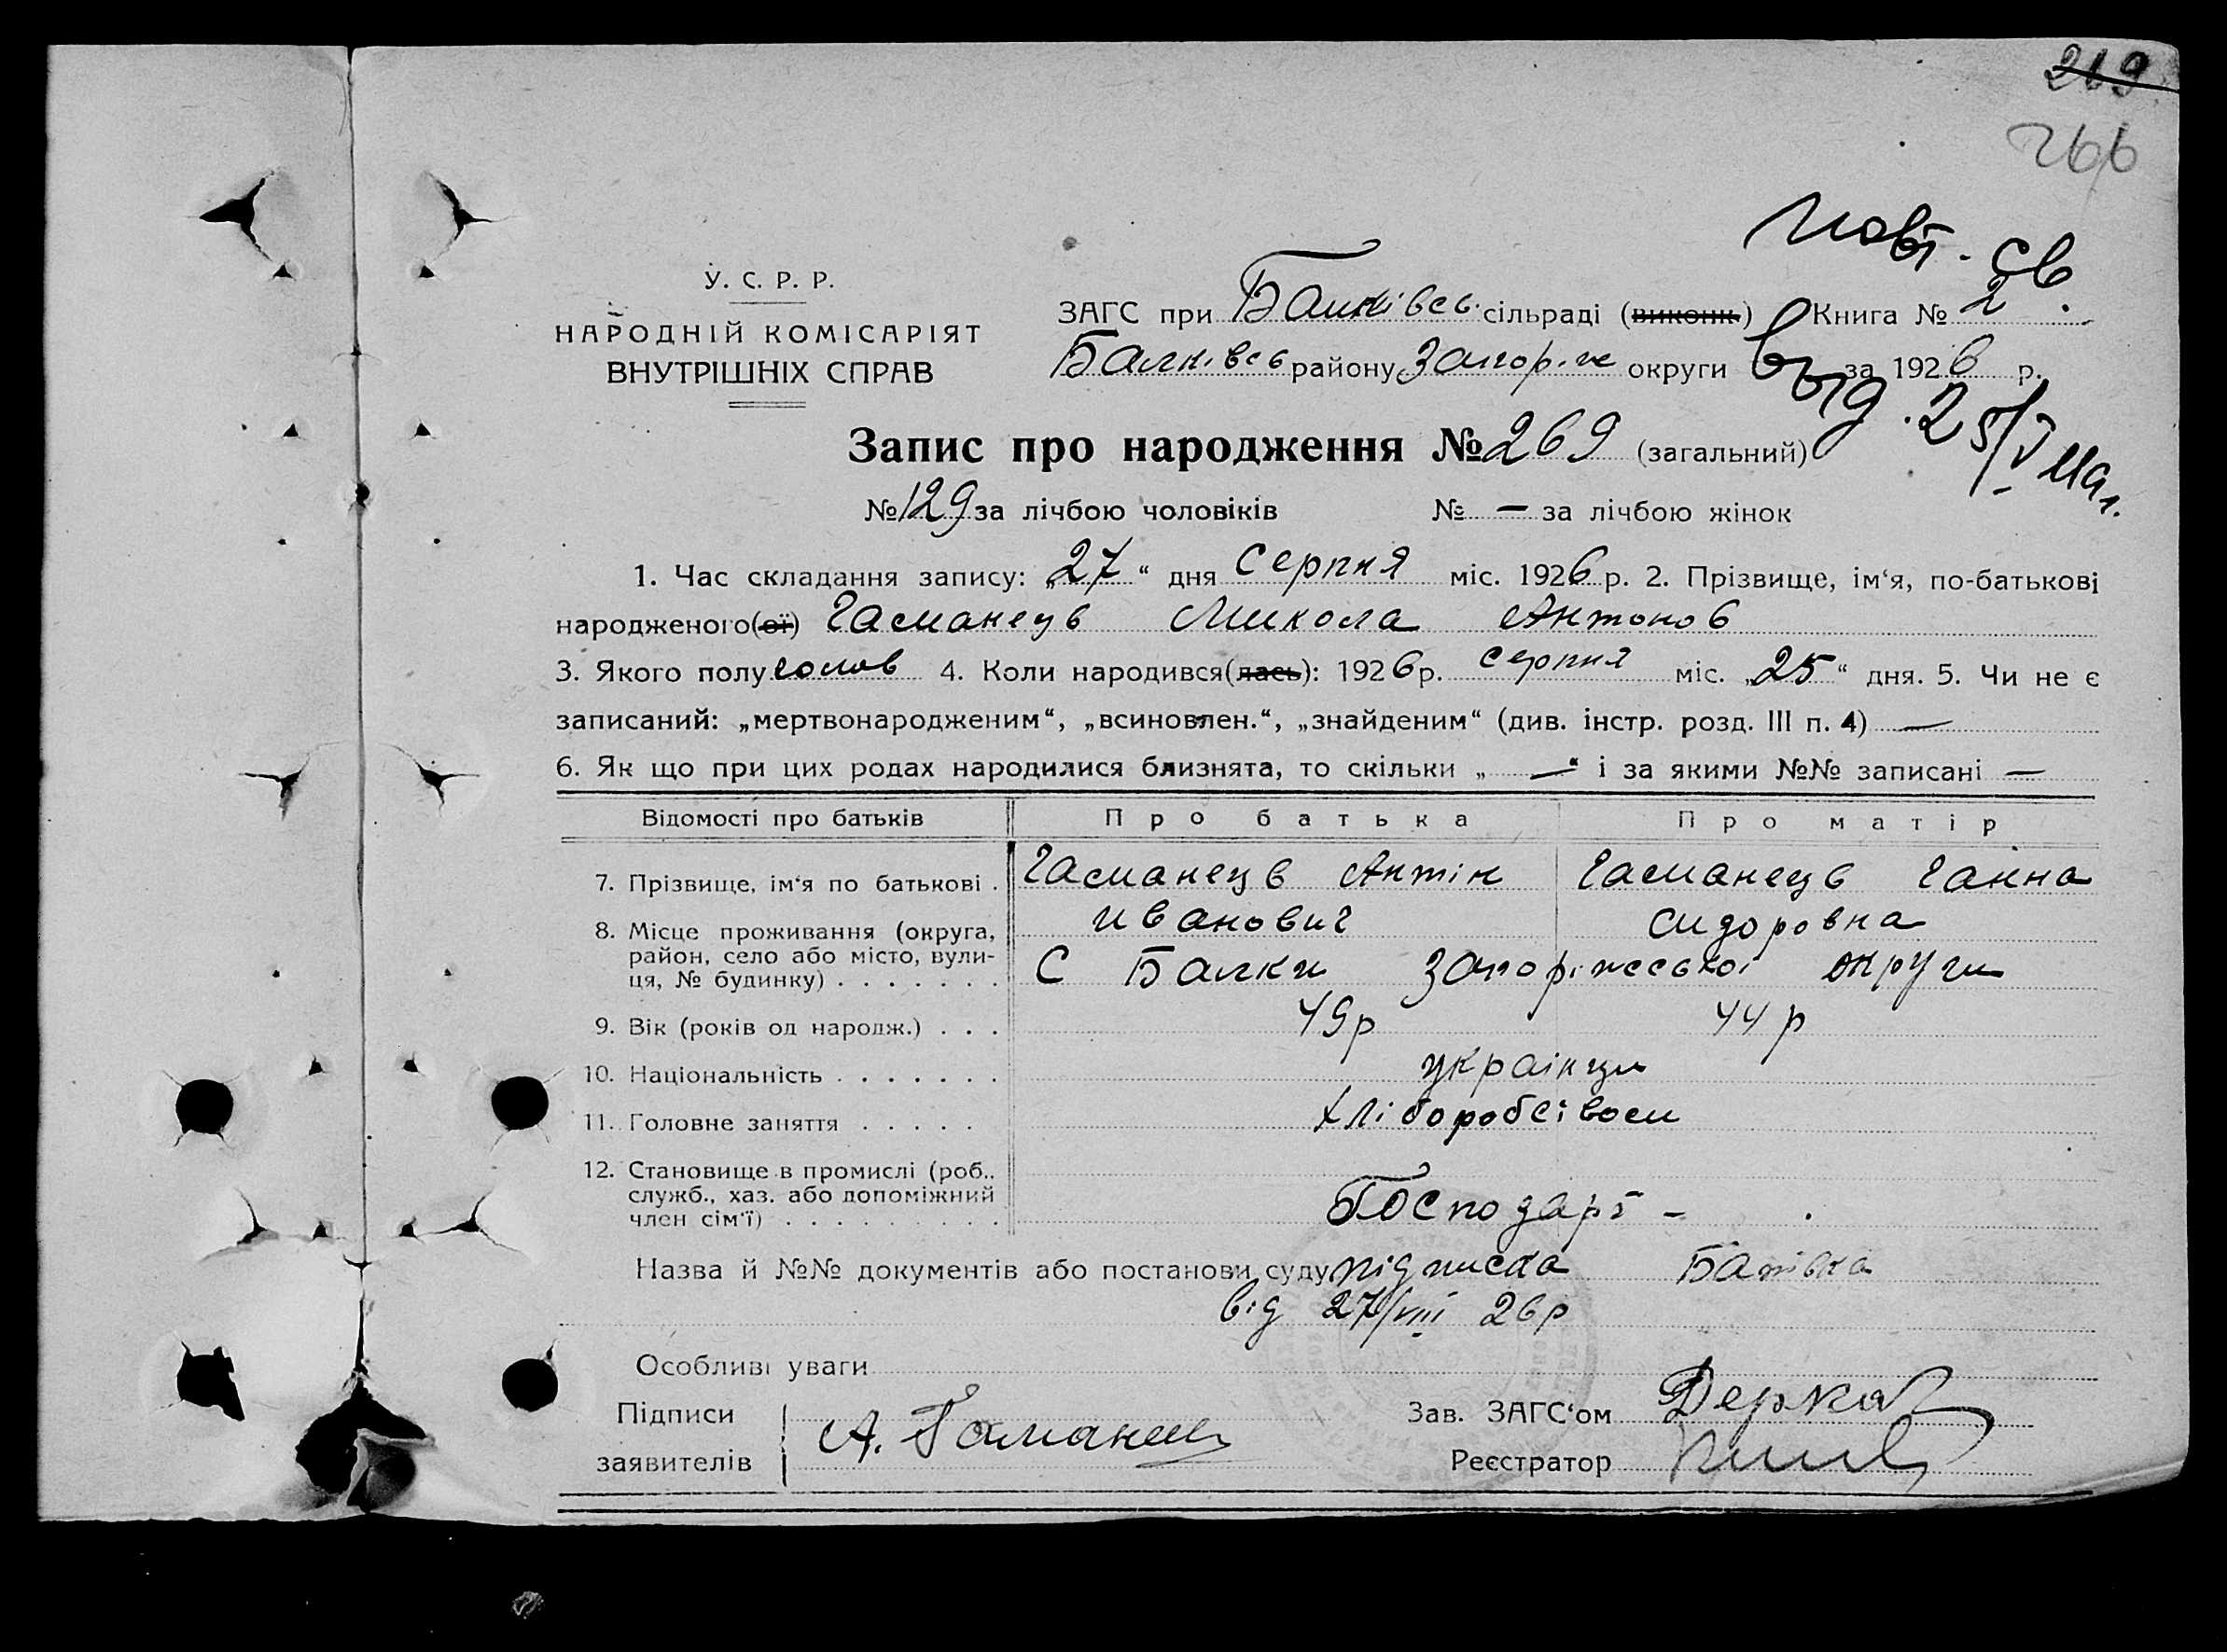 269
266
повт. св.
У. С. Р. Р.
НАРОДНІЙ КОМІСАРІЯТ
ВНУТРІШНІХ СПРАВ
ЗАГС при Балківсь сільраді (виконк.) Книга № 2
Балківсь району Запоріж округи за 1926 р.
выд. 25/V
Запис про народження № 269 (загальний)
№ 129 за лічбою чоловіків № — за лічбою жінок
1. Час складання запису: „27“ дня Серпня міс. 1926 р. 2. Прізвище, ім‘я, по-батькові
народженого(ої) Гаманець Микола Антонов
3. Якого полу чолов 4. Коли народився(лась): 1926 р. серпня міс. „25“ дня. 5. Чи не є
записаний: „мертвонародженим“, „всиновлен.“, „знайденим“ (див. інстр. розд. III п. 4) —
6. Як що при цих родах народилися близнята, то скільки „—“ і за якими №№ записані —
Відомості про батьків Про батька Про матір
7. Прізвище, ім‘я по батькові . Гаманець Антін Иванович Гаманець Ганна Сидоровна
8. Місце проживання (округа,
район, село або місто, вули-
ця, № будинку) . . . . . . . С Балки Запоріжської округи
9. Вік (років од народж.) . . . 49р 44р
10. Національність . . . . . . . українци
11. Головне заняття . . . . .
12. Становище в промислі (роб..
служб., хаз. або допоміжний
член сім‘ї) . . . . . . . . . Господарі –
Назва й №№ документів або постанови суду підписка Батівка
від 27/VIII 26р
Особливі уваги
Підписи
заявителів А. Гаманец
Зав. ЗАГС‘ом Деркач
Реєстратор